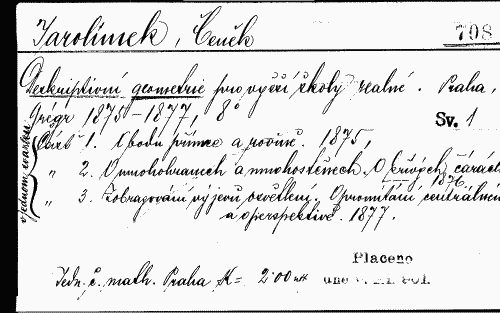 Jarolímek, Čeněk
708
Deskriptivní geometrie pro vyšší školy realné. Praha,
Grégr 1875-1877, 8°
Sv. 1
Část 1. O bodu přímce a rovině. 1875,
„ 2. O mnohohranech a mnohostěnech. O křivých čarách 1876.
„ 3. Zobrazování výjevů osvětlení. O promítání centrálném
a o perspektivě. 1877.
v jednom svazku
Placeno
Jedn. č. math. Praha K= 2·00
dne